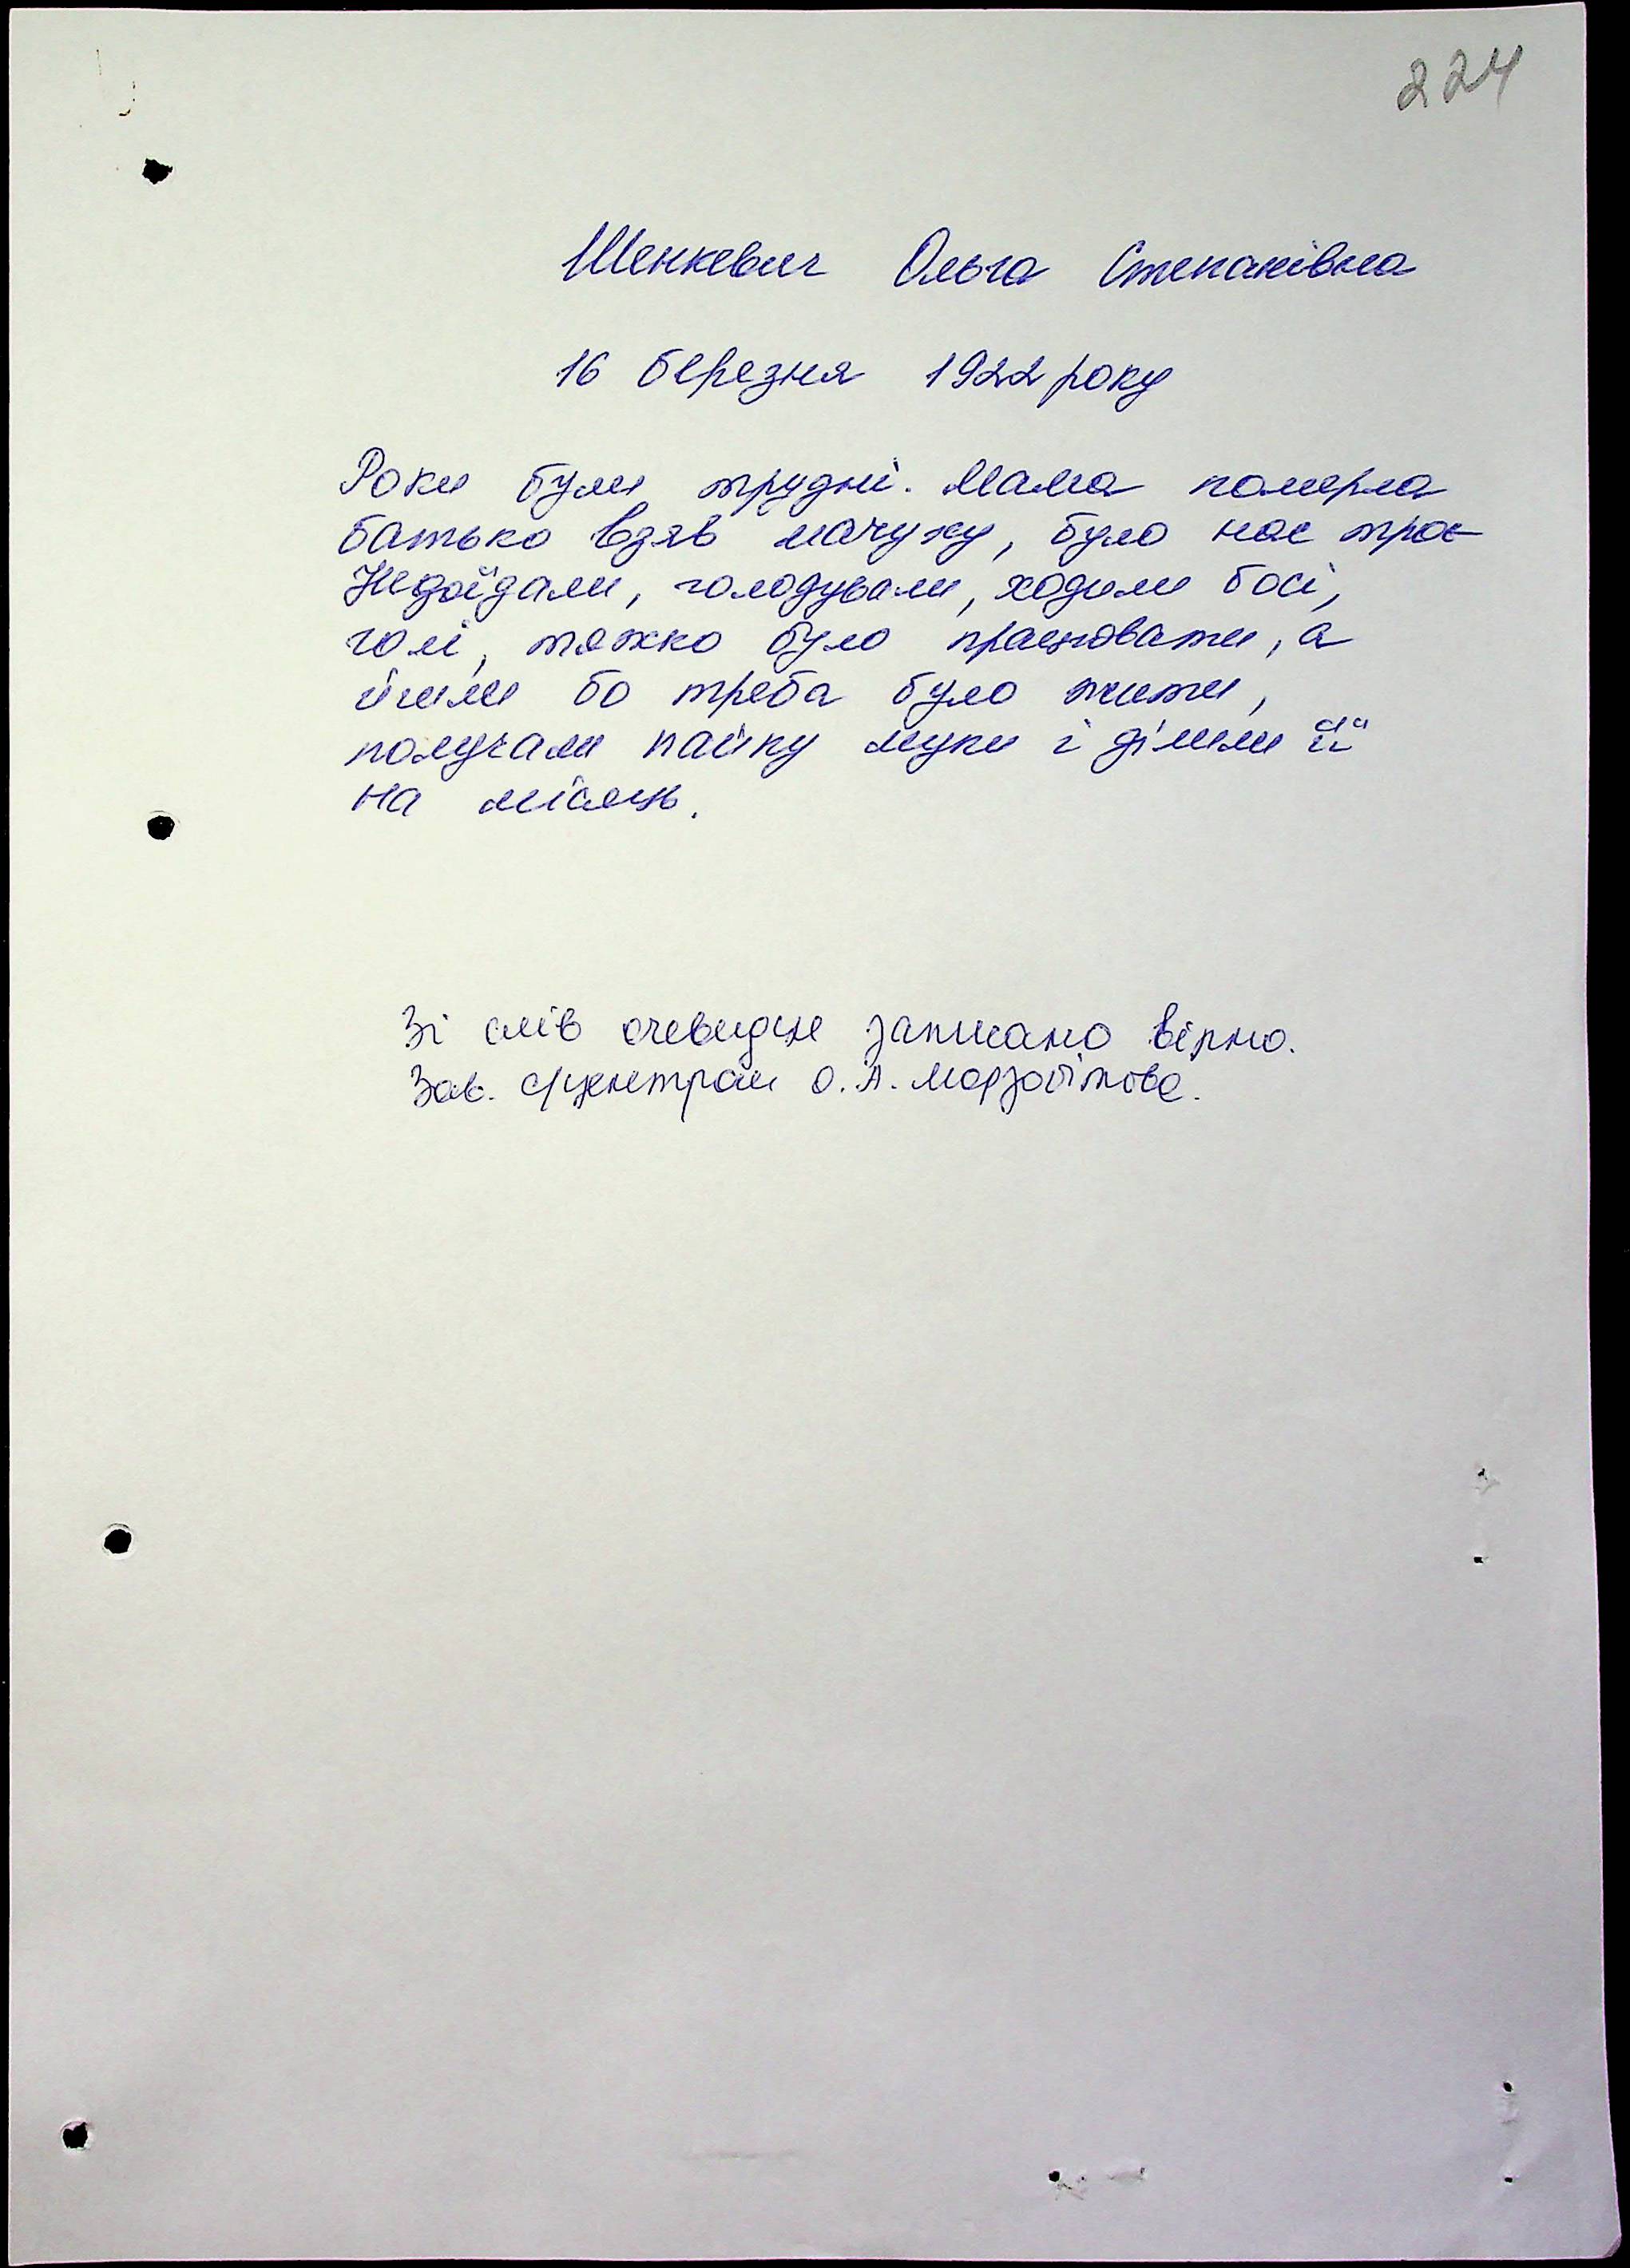 224
Шенкевич Ольга Степанівна
16 березня 1922 року
Роки були трудні. Мама померла
батько взяв мачуху, було нас троє
Недоїдали, голодували, ходили босі,
голі, тяжко було працювати, а
йшли бо треба було жити,
получали пайку муки і ділили її
на місяць.
Зі слів очевидця записано вірно.
Зав. О. А.